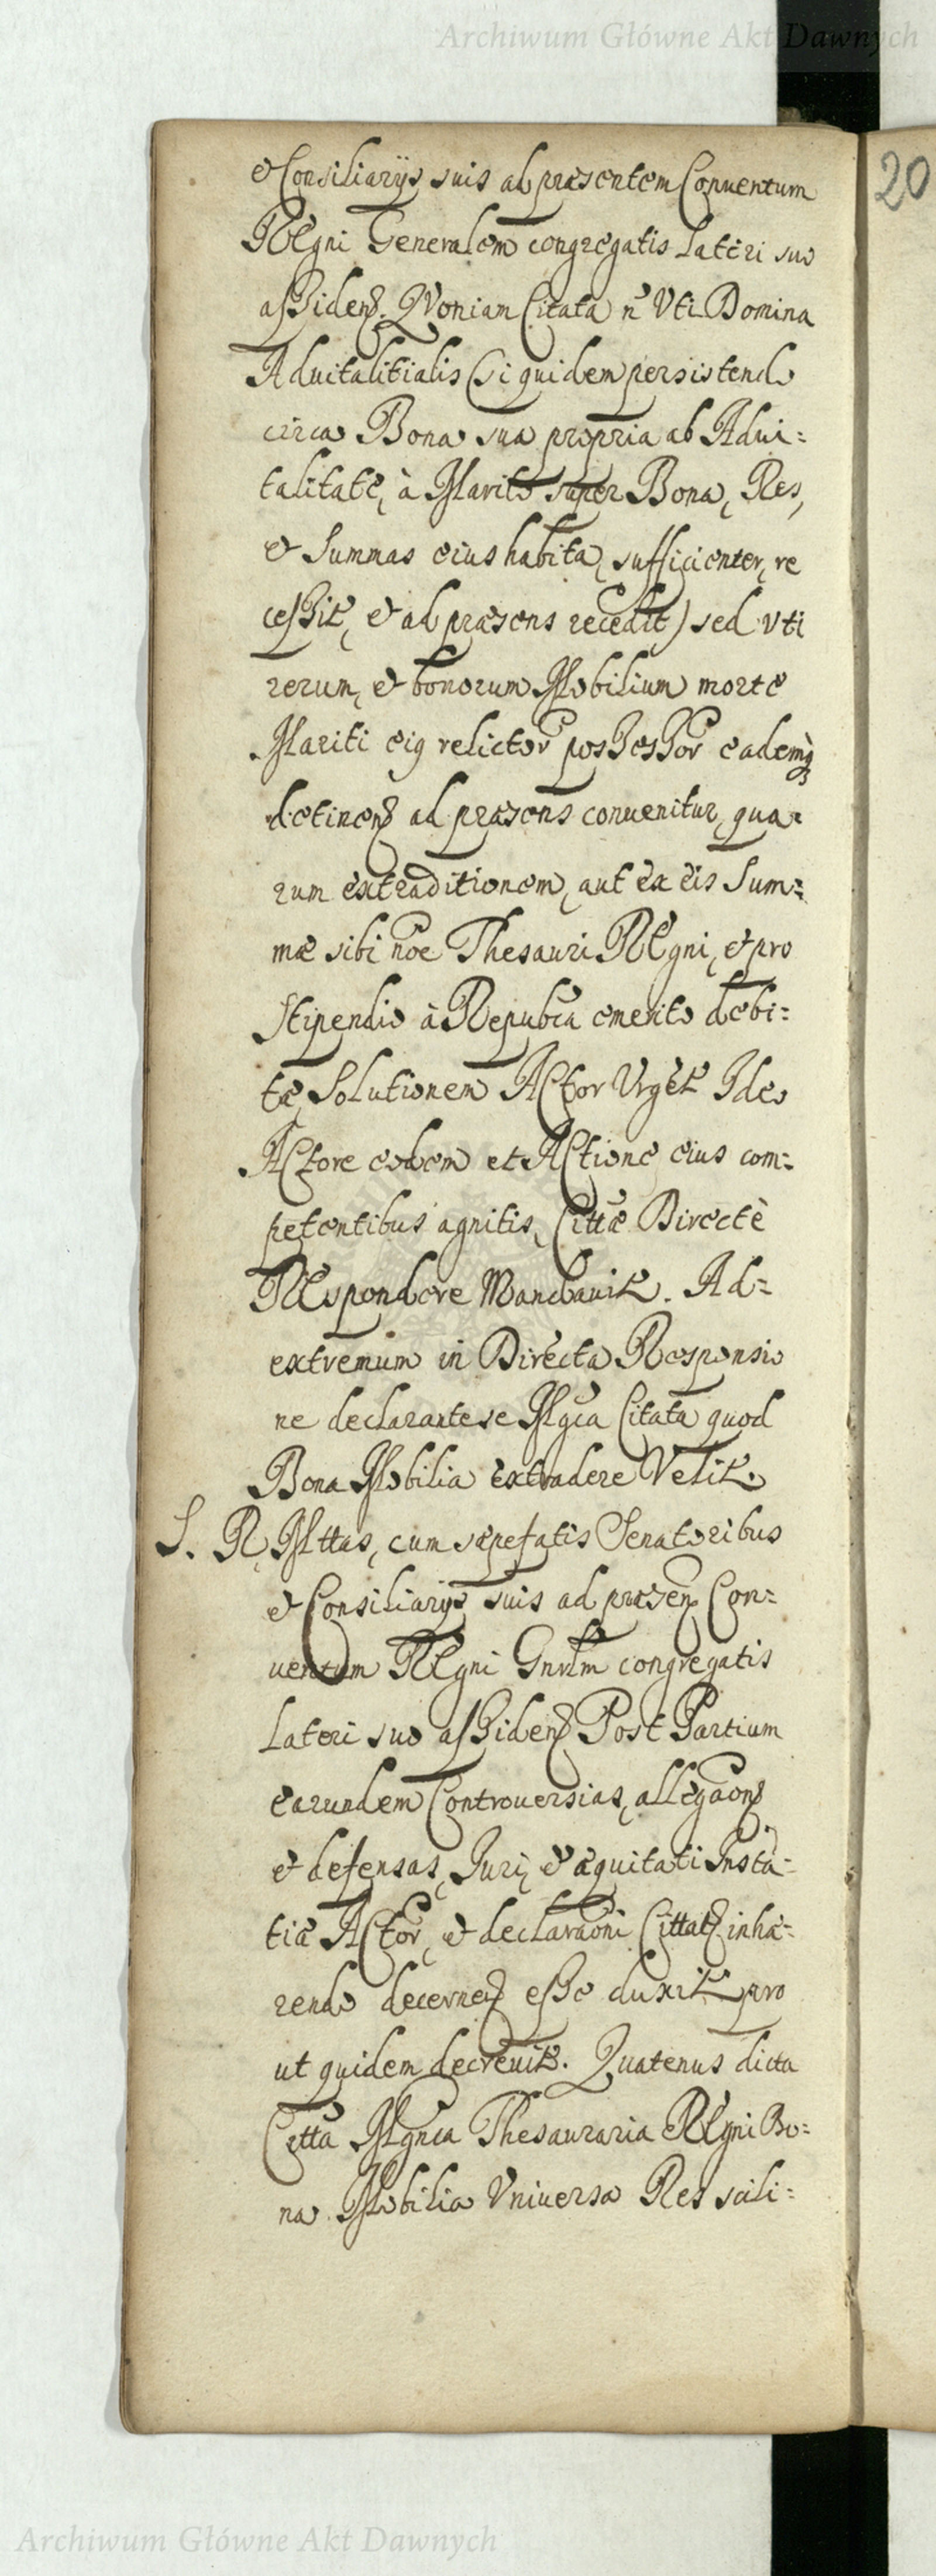 Archiwum Główne Akt Dawnych
20
et Consiliarijs suis ad præsentem Conuentum
Regni Generalem congregatis Lateri suo
assiden. Quoniam Citata n̄ Vti Domina
Aduitalitialis (siquidem persistendo
circa Bona sua propria ab Adui=
talitate, à Marito super Bona, Res,
et Summas eius habita, sufficienter, re
cessit, et ad præsens recedit) sed Vti
rerum, et bonorum Mobilium morte
Mariti eiq relictor possessor eademq
detinen ad præsens conuenitur, qua=
rum extraditionem, aut ex eis Sum=
mæ sibi nōe Thesauri Regni, et pro
Stipendio à Repubca emerito debi=
tæ, Solutionem Actor Urget Ideo
Actore eodem et Actione eius com=
petentibus agnitis, Cittæ Directè
Respondere Mandauit. Ad=
extremum in Directa Responsio
ne declarante se Mgca Citata quod
Bona Mobilia extradere Velit.
S. R. Mttas, cum sæpefatis Senatoribus
et Consiliarijs suis ad præsen Con=
uentum Regni Gnrlm congregatis
Lateri suo assiden Post Partium
earundem Controuersias, allegaon
et defensas, Juri, et æquitati Insta=
tiæ Actor, et declaraoni Cittat inhæ=
rendo decernen esse duxit pro
ut quidem decreuit. Quatenus dicta
Citta Mgnca Thesauraria Regni Bo=
na Mobilia Vniuersa Res scili=
Archiwum Główne Akt Dawnych